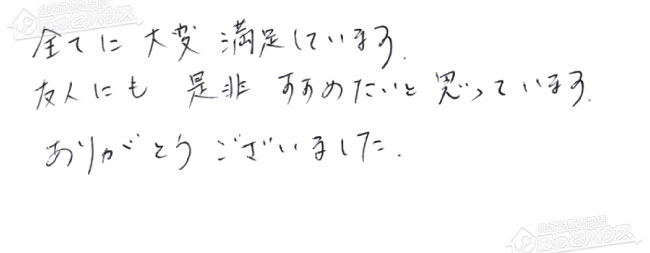 全てに大変満足しています.
友人にも是非すすめたいと思っています.
ありがとうございました.